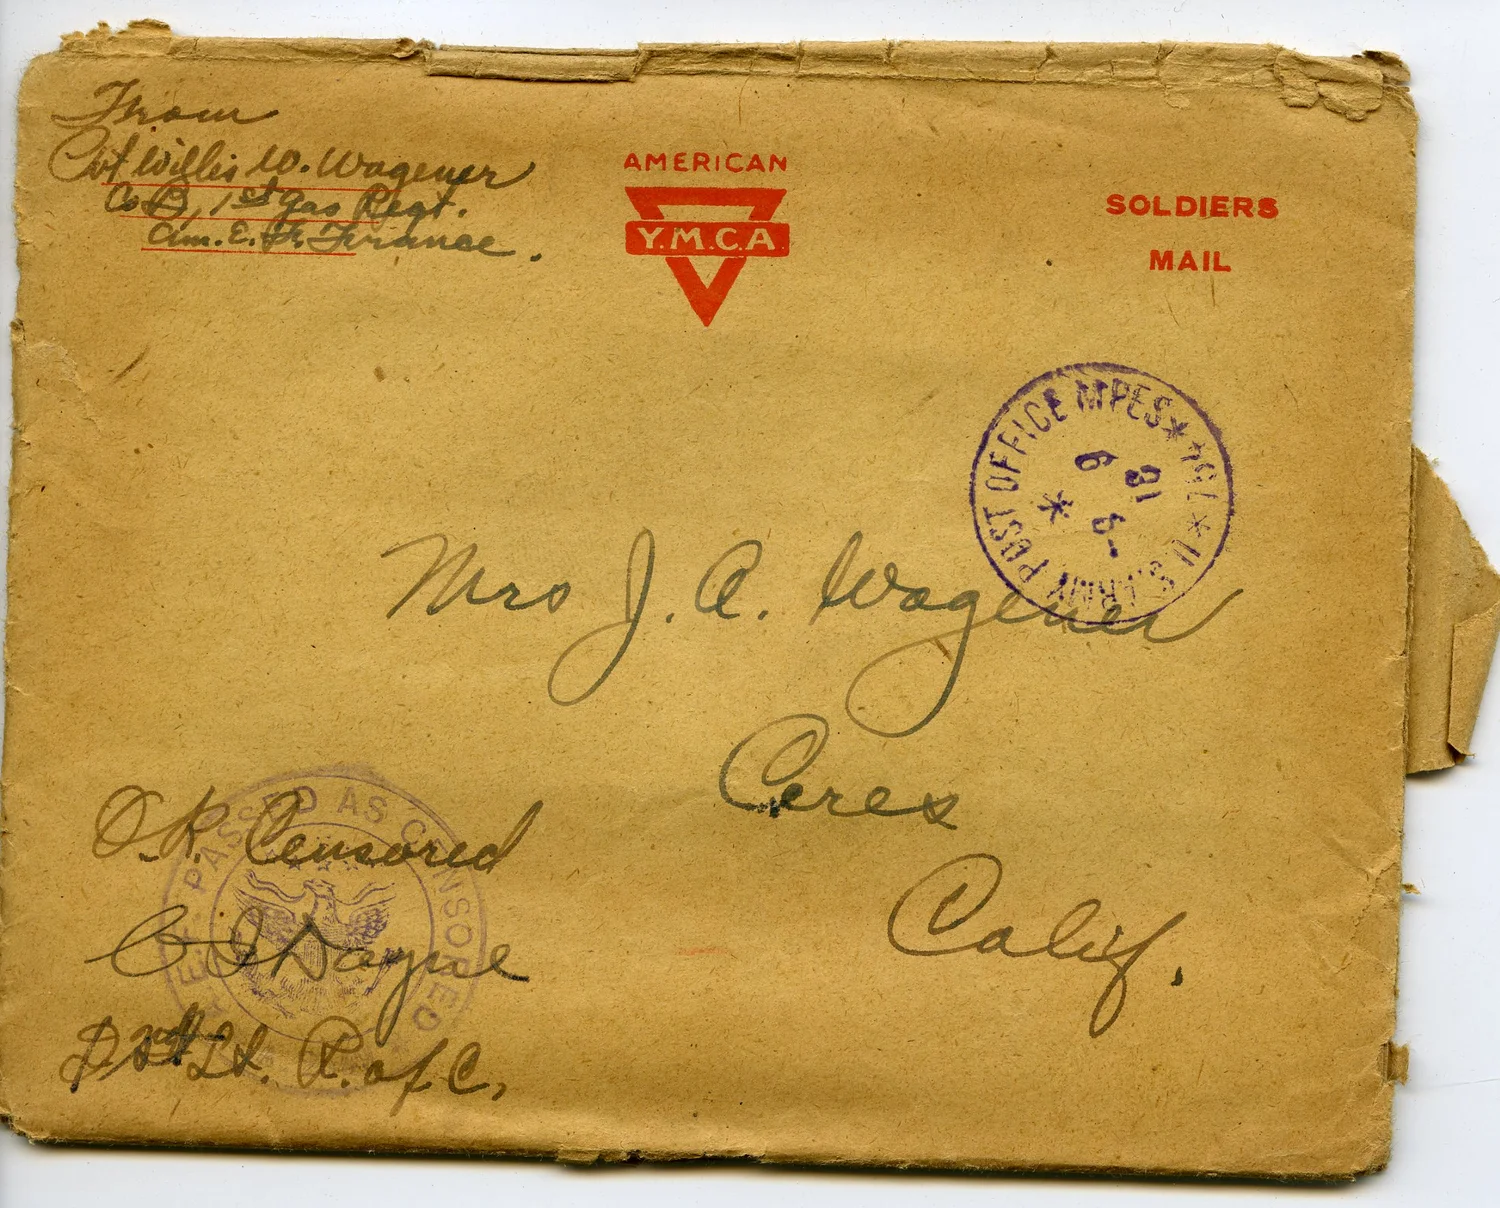 From
Pvt Willis W. Wagener
Co B, 1st Gas Regt.
Am. E. F. France.
AMERICAN
Y.M.C.A.
SOLDIERS
MAIL
U.S. ARMY POST OFFICE MPES * 764 *
Mrs J. A. Wagener
Ceres
Calif.
PASSED AS CENSORED
O.K. Censored
Lt.